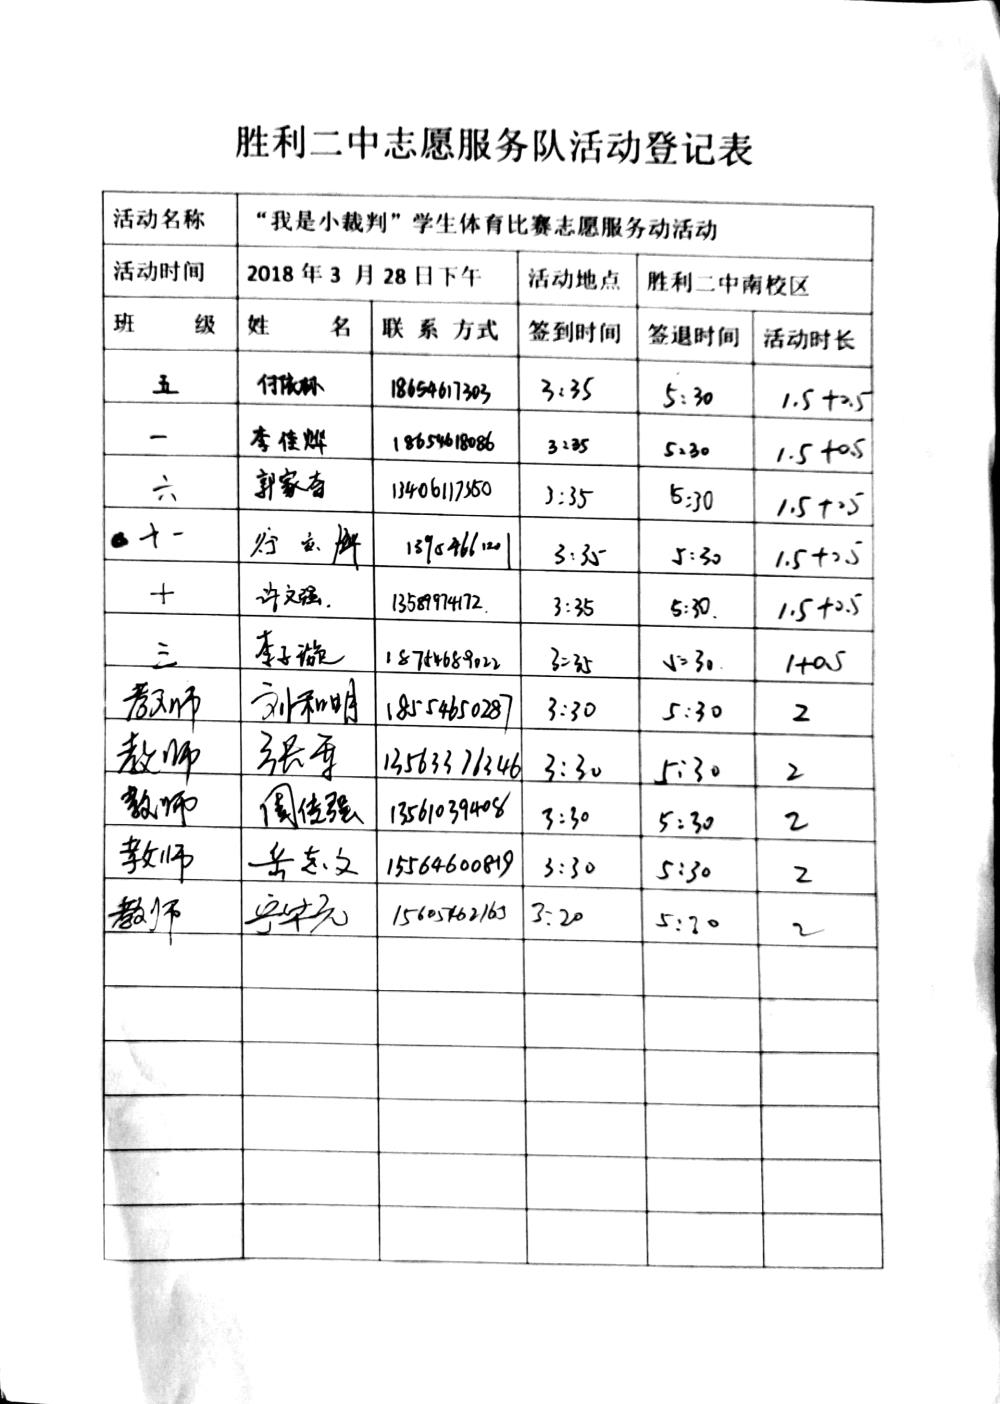 胜利二中志愿服务队活动登记表
活动名称 “我是小裁判”学生体育比赛志愿服务动活动
活动时间 2018 年 3 月 28 日下午 活动地点 胜利二中南校区
班 级 姓 名 联 系 方式 签到时间 签退时间 活动时长
五 18654617303 3:35 5:30 1.5+0.5
一 李佳烨 18654618086 3:35 5:30 1.5+0.5
六 郭家杏 13406117350 3:35 5:30 1.5+0.5
十一 3:35 5:30 1.5+0.5
十 许文强. 13589974172. 3:35 5:30. 1.5+0.5
三 李子璇 18754689022 3:35 5:30. 1+0.5
教师 刘和明 18554650287 3:30 5:30 2
教师 张军 13563376346 3:30 5:30 2
教师 周佳强 13561039408 3:30 5:30 2
教师 岳志文 15564600819 3:30 5:30 2
教师 3:20 5:30 2